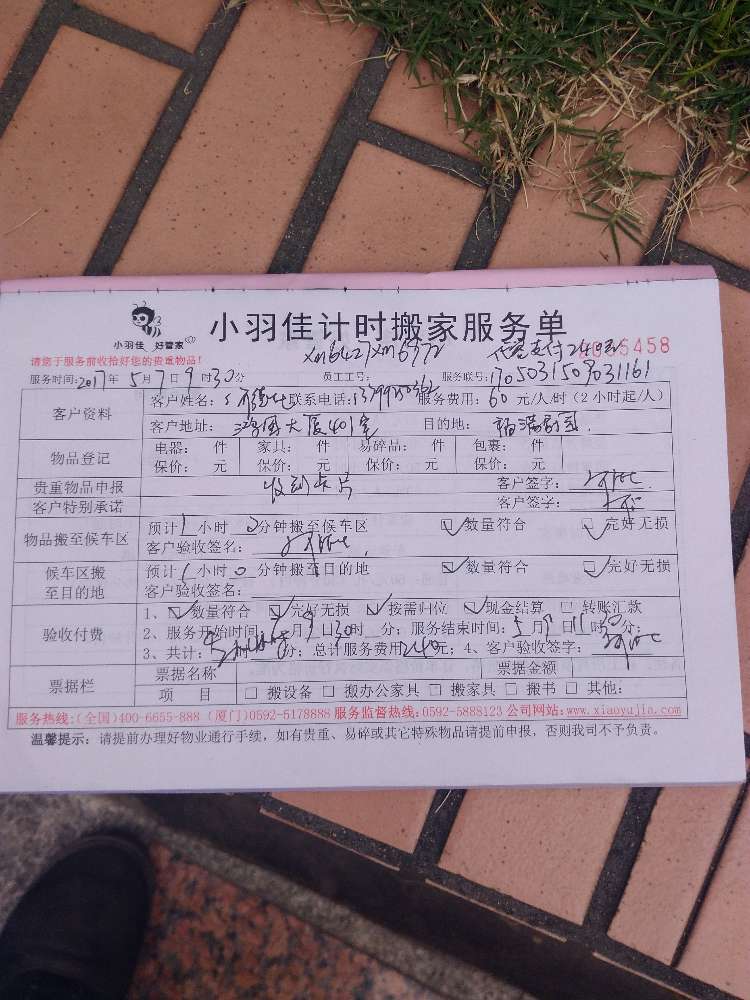 小羽佳 好管家
小羽佳计时搬家服务单
请您于服务前收拾好您的贵重物品！
xm6427 xm6972
支付240元
5458
服务时间:2017年 5月 7日 9时30分 员工工号: 服务联号:
客户资料
客户姓名: 联系电话: 服务费用: 60 元/人/时（2小时起/人）
客户地址: 大厦401室 目的地:
物品登记
电器: 件 家具: 件 易碎品: 件 包裹: 件
保价: 元 保价: 元 保价: 元 保价: 元
贵重物品申报 收到卡片 客户签字:
客户特别承诺 客户签字:
物品搬至候车区
预计1小时 0分钟搬至候车区 ☑数量符合 ☑完好无损
客户验收签名:
候车区搬至目的地
预计1小时 0 分钟搬至目的地 ☑数量符合 ☑完好无损
客户验收签名:
验收付费
1、☑数量符合 ☑完好无损 ☑按需归位 ☑现金结算 □转账汇款
2、服务开始时间: 月 日 时 分；服务结束时间: 5月 日11时30分；
3、共计: 时 分；总计服务费用240元；4、客户验收签字:
票据栏
票据名称 票据金额
项 目 □ 搬设备 □ 搬办公家具 □ 搬家具 □ 搬书 □ 其他:
服务热线:(全国)400-6655-888 (厦门)0592-5179888 服务监督热线:0592-5888123 公司网站:www.xiaoyujia.com
温馨提示: 请提前办理好物业通行手续，如有贵重、易碎或其它特殊物品请提前申报，否则我司不予负责。